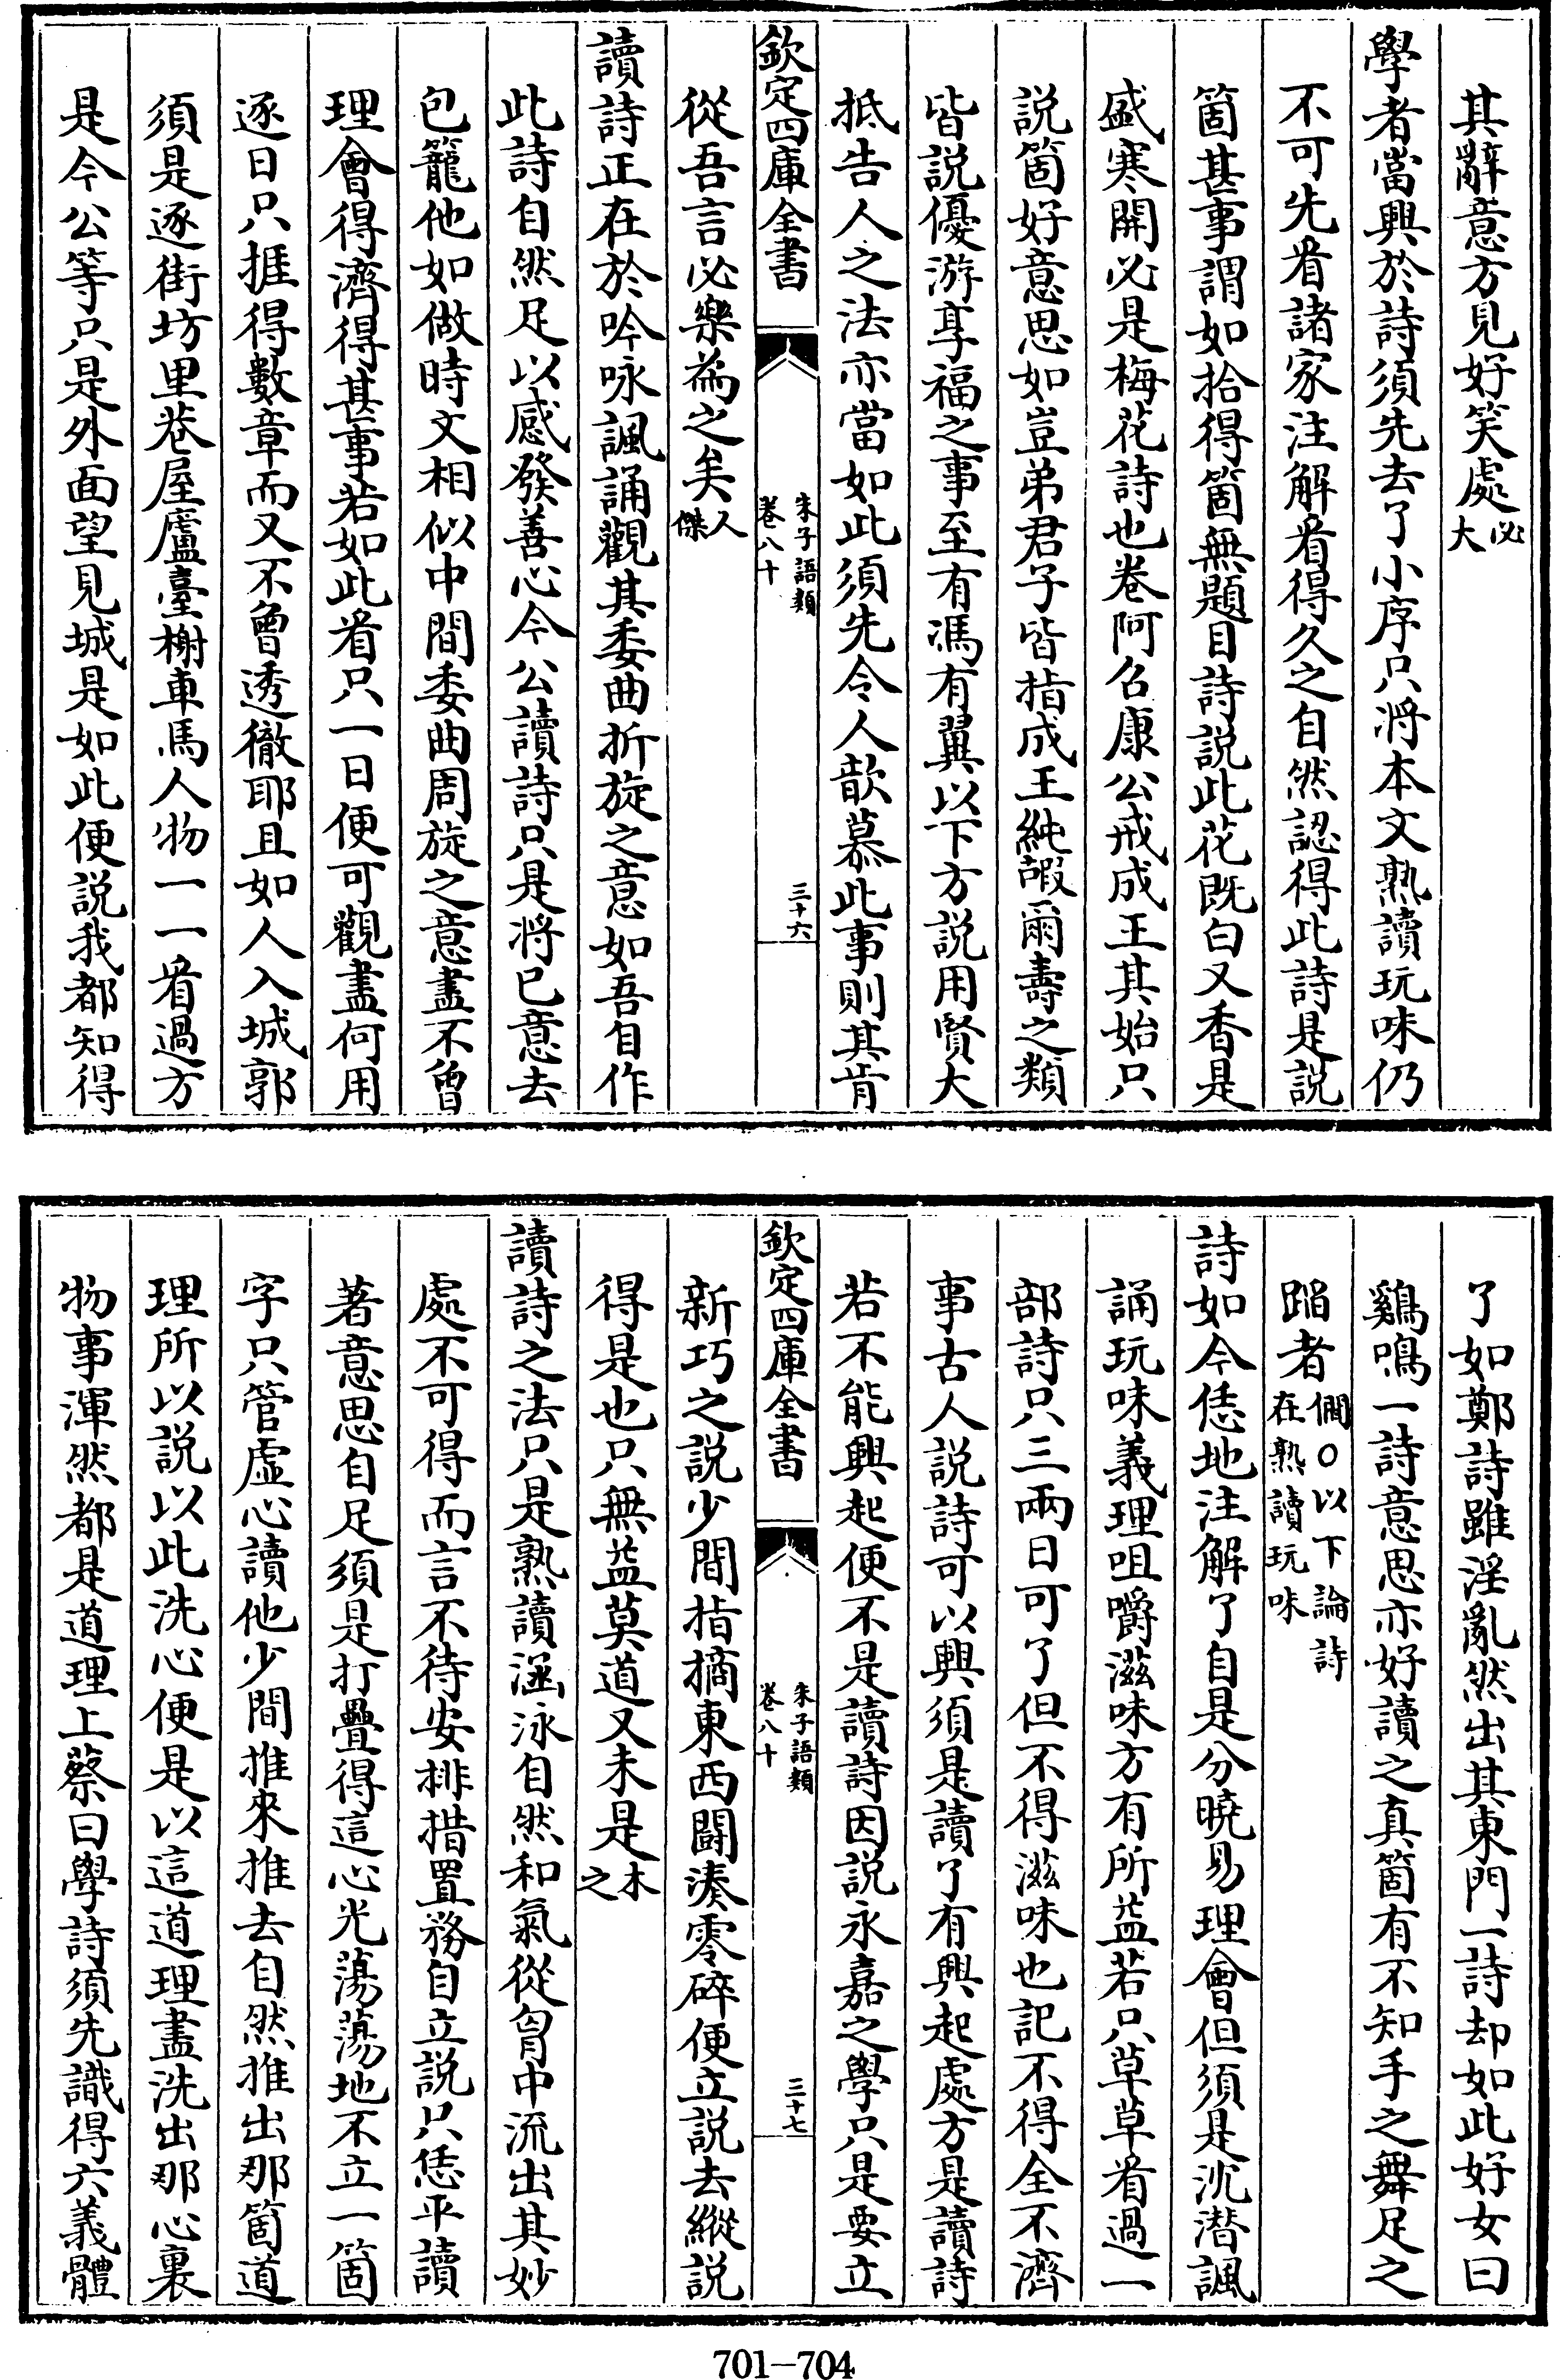 其辭意方見好笑處必大
學者當興於詩須先去了小序只將本文熟讀玩味仍
不可先看諸家注解看得久之自然認得此詩是説
箇甚事謂如拾得箇無題目詩説此花既白又香是
盛寒開必是梅花詩也卷阿召康公戒成王其始只
説箇好意思如豈弟君子皆指成王純嘏爾壽之類
皆説優游享福之事至有馮有翼以下方説用賢大
抵告人之法亦當如此須先令人歆慕此事則其肯
欽定四庫全書
朱子語類
卷八十
三十六
從吾言必樂為之矣人傑
讀詩正在於吟咏諷誦觀其委曲折旋之意如吾自作
此詩自然足以感發善心今公讀詩只是將已意去
包籠他如做時文相似中間委曲周旋之意盡不曾
理會得濟得甚事若如此看只一日便可觀盡何用
逐日只捱得數章而又不曾透徹耶且如人入城郭
須是逐街坊里巷屋廬臺榭車馬人物一一看過方
是今公等只是外面望見城是如此便説我都知得
了如鄭詩雖淫亂然出其東門一詩却如此好女曰
鷄鳴一詩意思亦好讀之真箇有不知手之舞足之
蹈者僩○以下論詩在熟讀玩味
詩如今恁地注解了自是分曉易理會但須是沈潛諷
誦玩味義理咀嚼滋味方有所益若只草草看過一
部詩只三兩日可了但不得滋味也記不得全不濟
事古人説詩可以興須是讀了有興起處方是讀詩
若不能興起便不是讀詩因説永嘉之學只是要立
欽定四庫全書
朱子語類
卷八十
三十七
新巧之説少間指摘東西鬭湊零碎便立説去縱説
得是也只無益莫道又未是木之
讀詩之法只是熟讀涵泳自然和氣從胷中流出其妙
處不可得而言不待安排措置務自立説只恁平讀
著意思自足須是打疊得這心光蕩蕩地不立一箇
字只管虛心讀他少間推來推去自然推出那箇道
理所以説以此洗心便是以這道理盡洗出那心裏
物事渾然都是道理上蔡曰學詩須先識得六義體
701—704